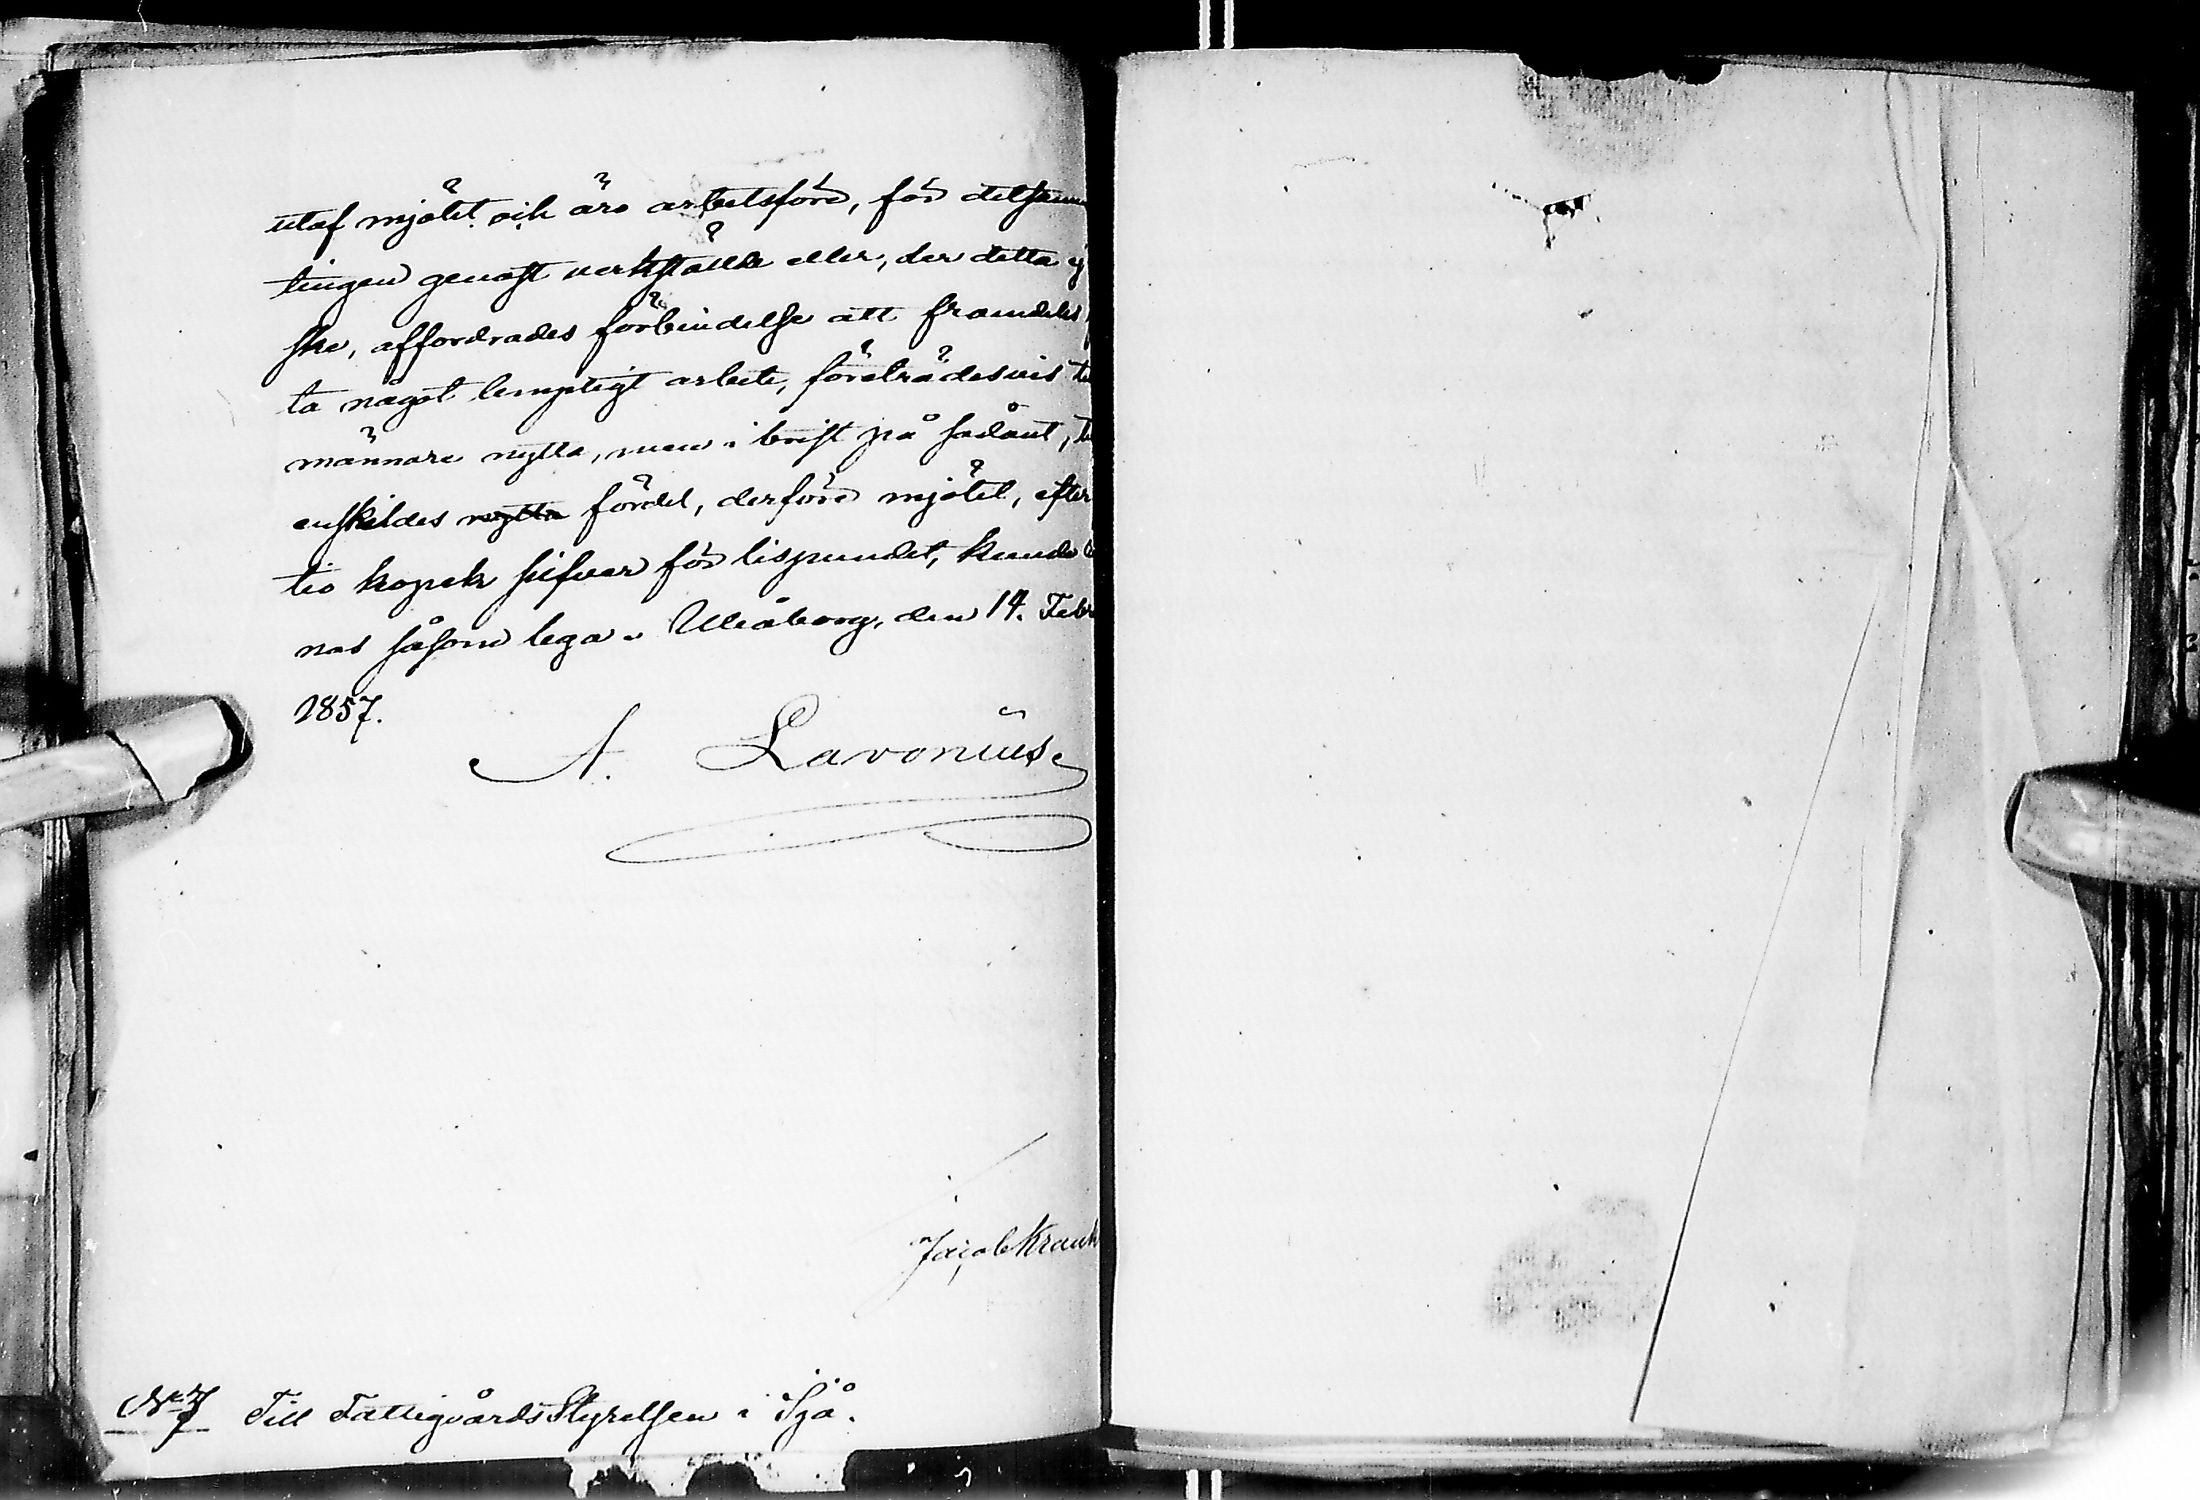 utaf mjölet och äro arbetsföre, för detsamm
tingen genast verkställa eller, der detta ej
ske, affordrades förbindelse att framdeles
ta något lämpligt arbete, företrädesvis
männare nytta, men i brist på sådant,
enskildes nytta fördel, derföre mjölet, efter
tio kopek silfver för lispundet, kunde
nas såsom lega. Uleåborg, den 14. Febr
1857.
A. Lavonius
Jacob Krank
No 7 Till FattigvårdsStyrelsen i Ijå.